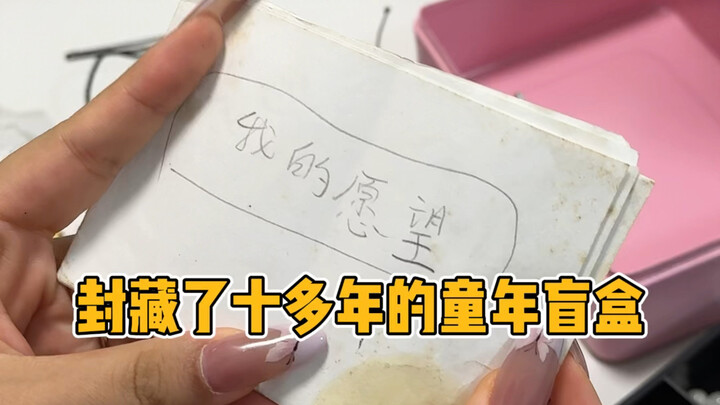 我的愿望
封藏了十多年的童年盲盒